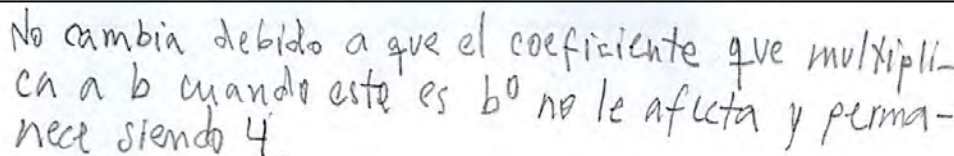 No cambia debido a que el coeficiente que multipli-
ca a b cuando este es b⁰ no le afecta y perma-
nece siendo 4